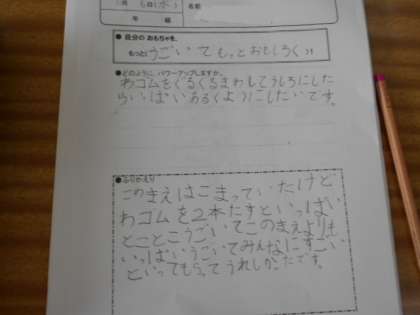 月6日(水)
名前
年 組
●自分のおもちゃを、
もっと うごいてもっとおもしろく
●どのように、パワーアップしますか。
わゴムをぐるぐるまわしてうしろにした
らいっぱいあるくようにしたいです。
●ふりかえり
このまえはこまっていたけど
わゴムを2本たすといっぱい
とことこうごいてこのまえよりも
いっぱいうごいてみんなにすごい
といってもらってうれしかったです。